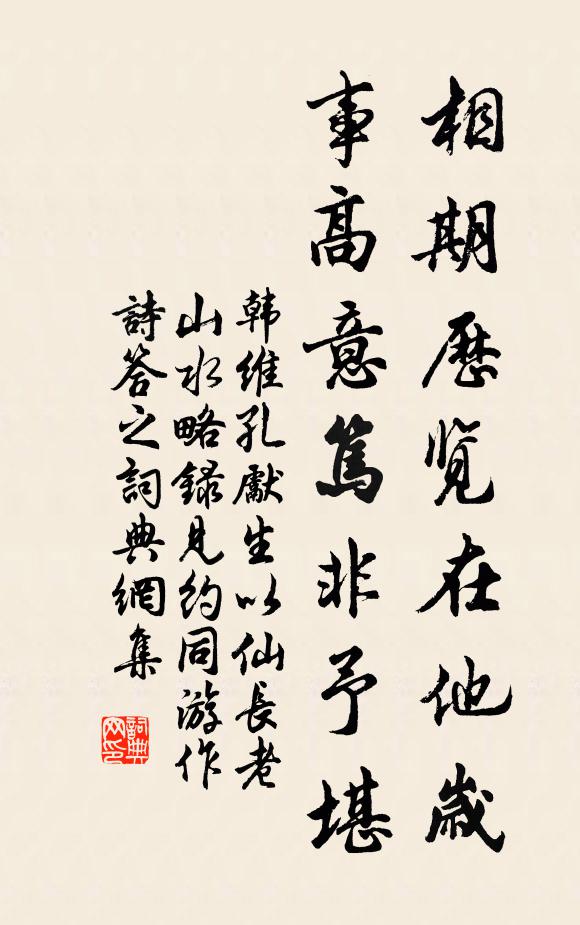 相期歷覽在他歲
事高意篤非予堪
韩維孔獻生以仙長老
山水略録見約同游作
詩答之詞典網集
詞典网印